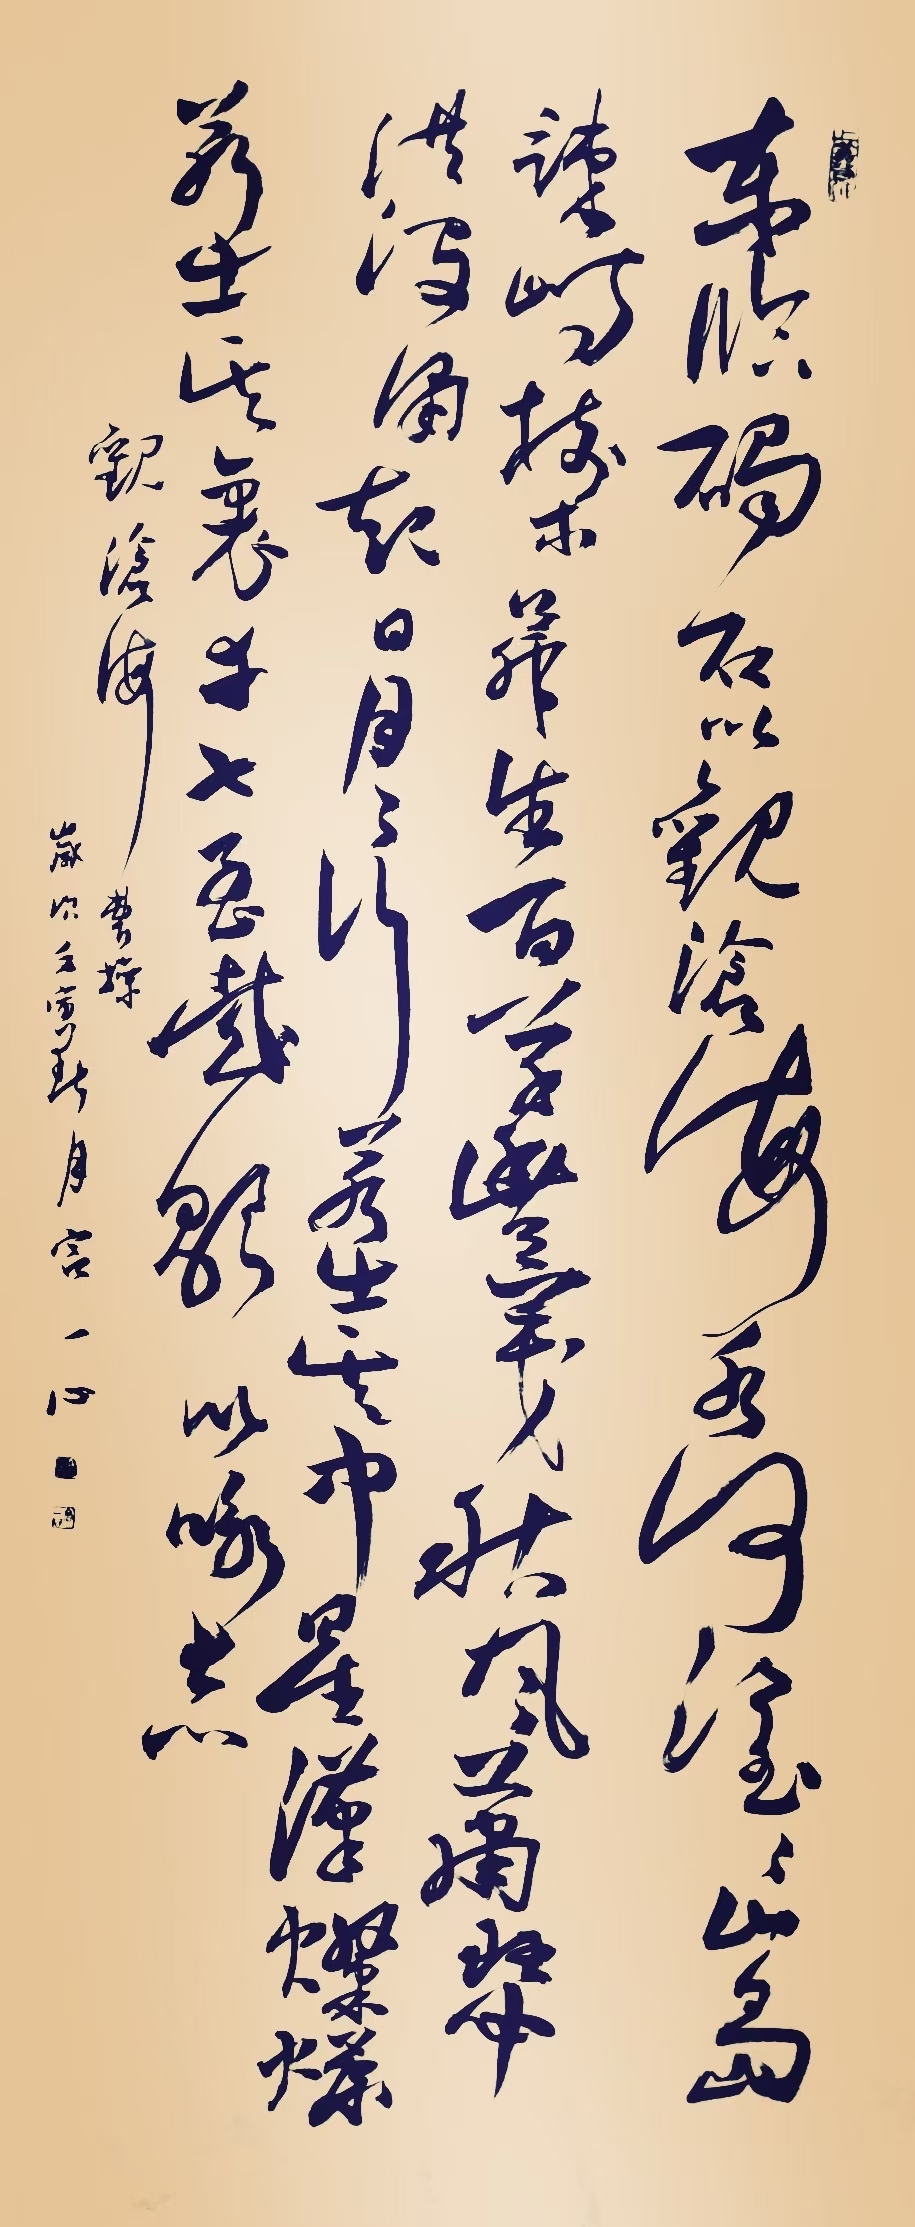 東臨碣石以觀滄海水何澹〻山島
竦峙樹木叢生百草豐茂秋風蕭瑟
洪波涌起日月之行若出其中星漢燦爛
若出其裏幸甚至哉歌以咏志
觀滄海 曹操
歲次壬寅 月 一心